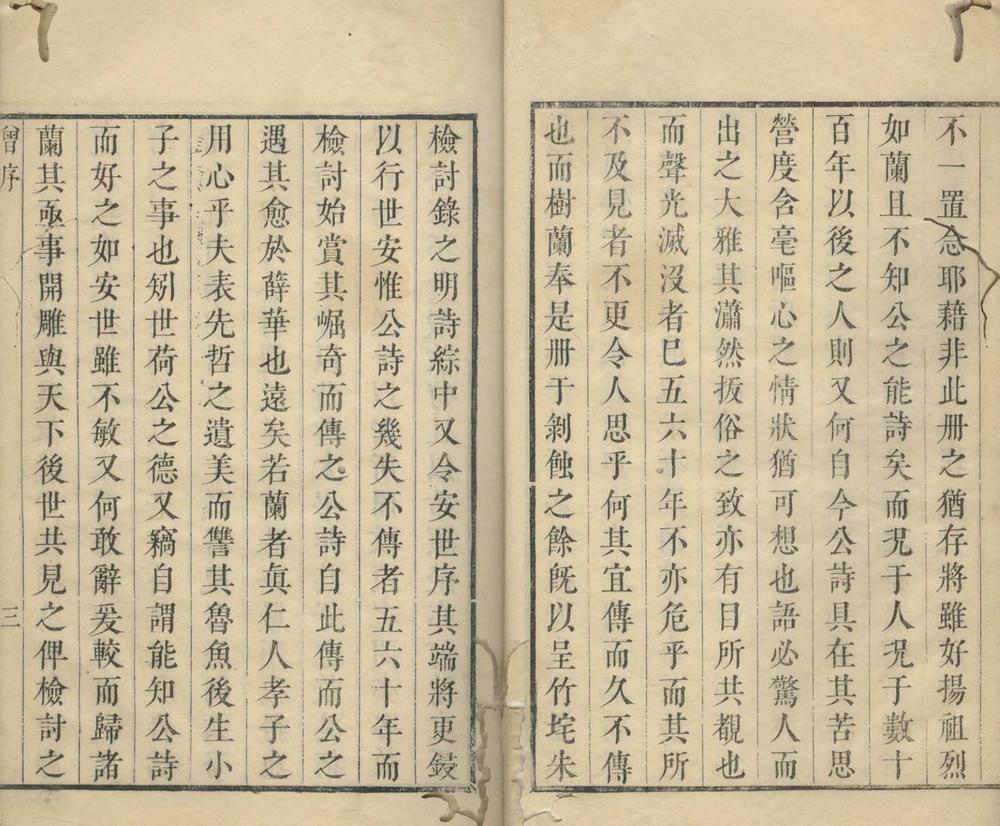 不一置念耶藉非此册之猶存將雖好揚祖烈
如蘭且不知公之能詩矣而況于人況于數十
百年以後之人則又何自今公詩具在其苦思
營度含毫嘔心之情狀猶可想也語必驚人而
出之大雅其瀟然扳俗之致亦有目所共覩也
而聲光滅沒者已五六十年不亦危乎而其所
不及見者不更令人思乎何其宜傳而久不傳
也而樹蘭奉是册于剝蝕之餘旣以呈竹垞朱
檢討錄之明詩綜中又令安世序其端將更鋟
以行世安惟公詩之幾失不傳者五六十年而
檢討始賞其崛奇而傳之公詩自此傳而公之
遇其愈於薛華也遠矣若蘭者眞仁人孝子之
用心乎夫表先哲之遺美而讐其魯魚後生小
子之事也矧世荷公之德又竊自謂能知公詩
而好之如安世雖不敏又何敢辭爰較而歸諸
蘭其亟事開雕與天下後世共見之俾檢討之
曾序 三